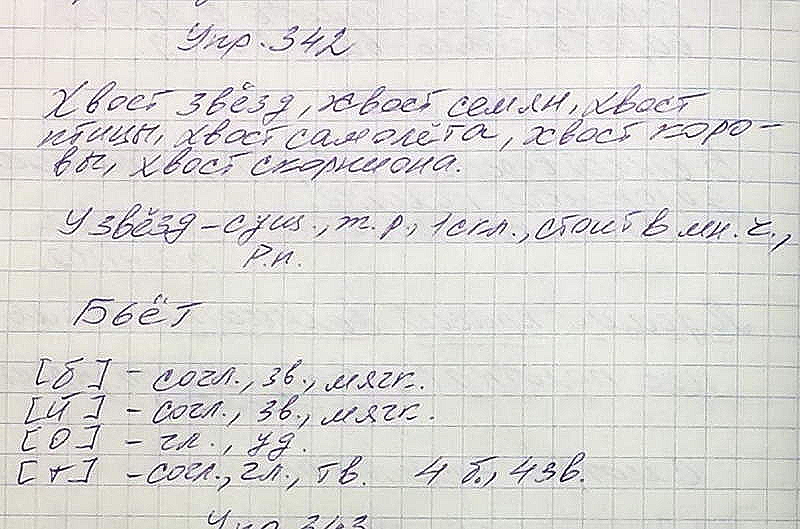 Упр. 342
Хвост звёзд, хвост семян, хвост
птицы, хвост самолёта, хвост коро-
вы, хвост скорпиона.
У звёзд – сущ., ж.р., 1 скл., стоит в мн.ч.,
Р.п.
Бьёт
[б] – согл., зв., мягк.
[й] – согл., зв., мягк.
[о] – гл., уд.
[т] – согл., гл., тв. 4 б., 4 зв.
Упр. 343